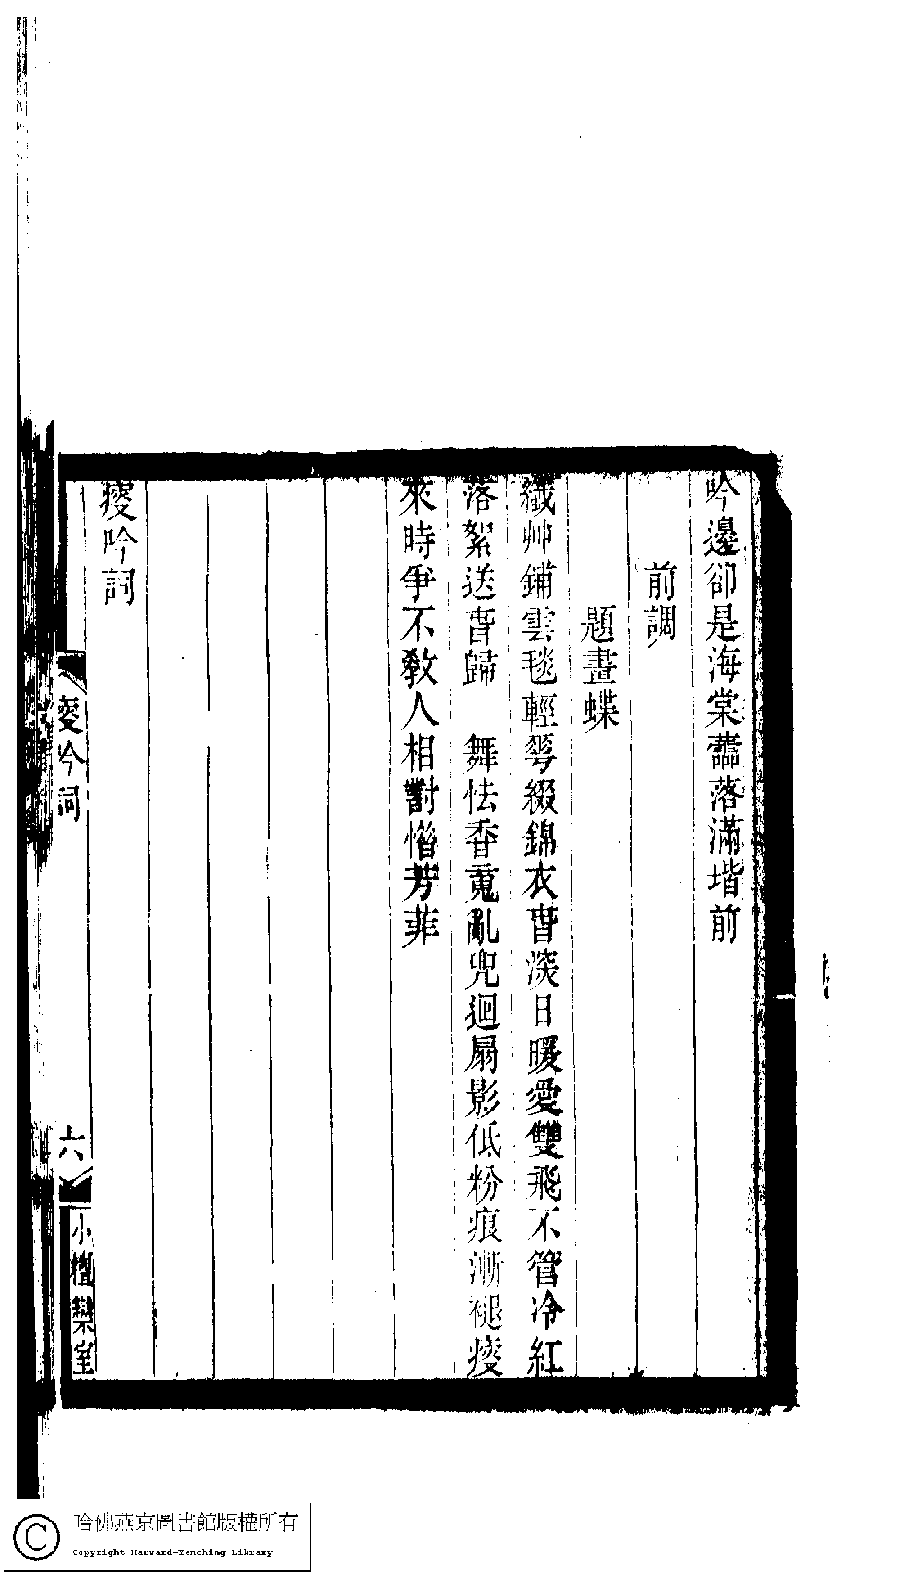 吟邊卻是海棠蘦落滿堦前
前調
題畫蝶
纖艸鋪雲毯輕荂綴錦衣旾淡日暖愛雙飛不管冷紅
落絮送旾歸　舞怯香䰟亂兜迴扇影低粉痕漸褪瘦
來時爭不敎人相對惜芳菲
瘦吟詞
瘦吟詞
六
小檀欒室
哈佛燕京圖書館版權所有
Copyright Harvard-Yenching Library